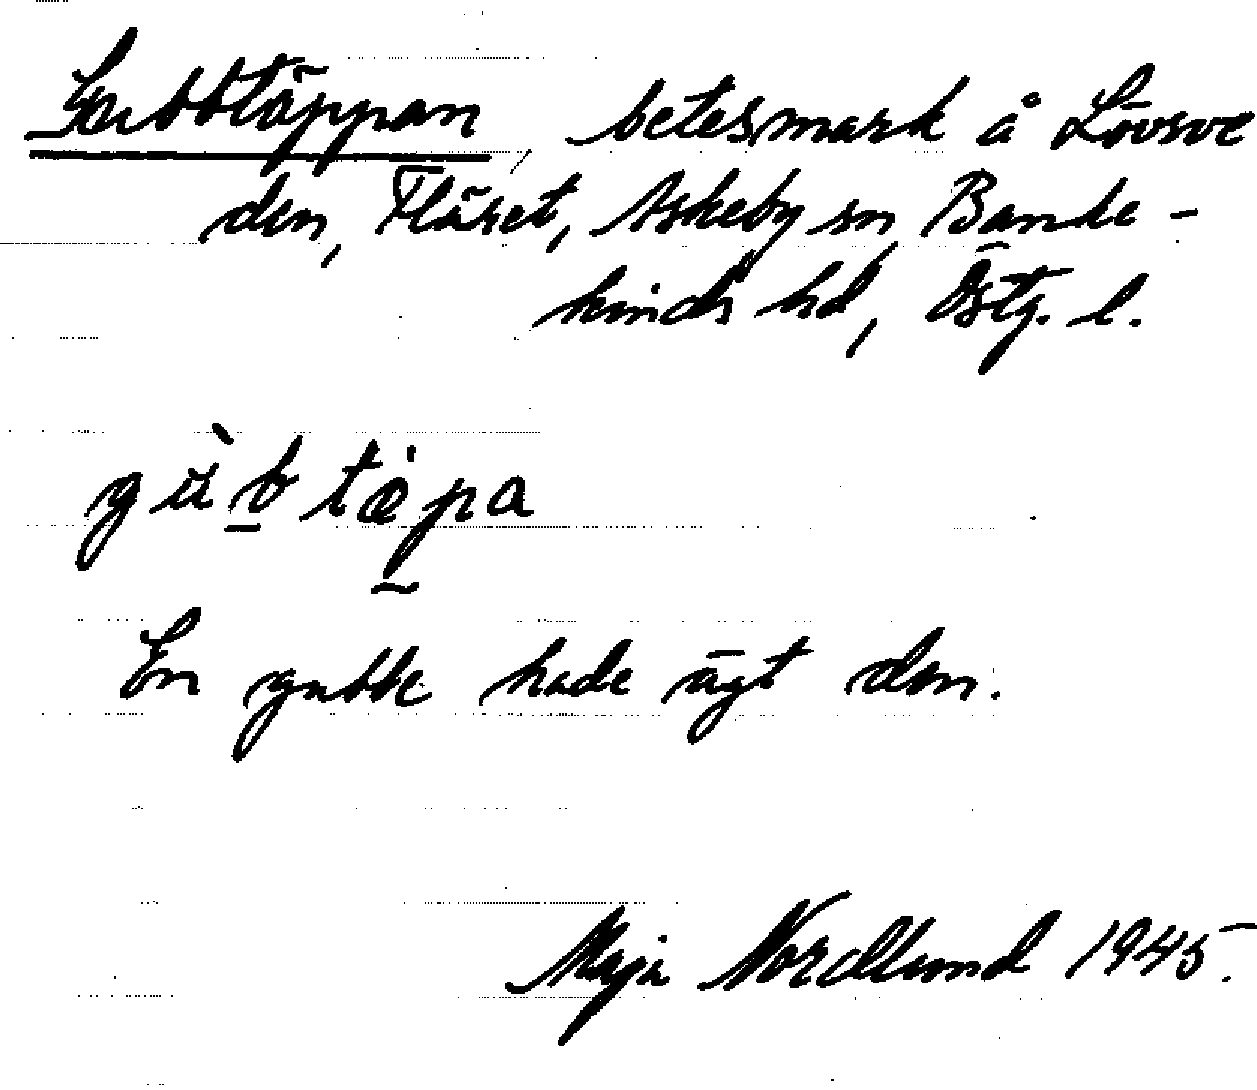 Gubbtäppan, betesmark å Lövsve
den, Fläret, Askeby sn, Banke-
kinds hd, Östg. l.
gùbtȧpa
En gubbe hade ägt den.
Maja Nordlund 1945.